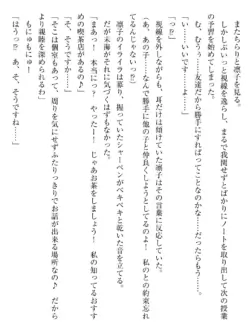 またちらりと凛子を見る。
しかしぷいっと視線を逸らし、まるで我関せずとばかりにノートを取り出して次の授業
の予習を始めてしまった。
「む、むぅっ……友達だから勝手にすればってことなのかな……だったらもう……。
「い……いいです……」
「っ!?」
視線を外しつつも、耳だけは傾けていた凛子はその言葉に反応していた。
（あ、あの子……なんで勝手に他の子と仲良くしようとしてるの!?　私との約束忘れ
てるんじゃないの!?）
凛子のイライラは募り、握っていたシャーペンがベキベキと乾いた音を立てる。
だが未海がそれに気づけるはずもなかった。
「まあっ！　本当に〜っ？　やったー！　じゃあお茶をしましょう！　私の知ってるおすす
めの喫茶店があるの♪」
「そ、そうですか……」
「そこは個室もあって、周りを気にせずふたりっきりでお話が出来る場所なの♪　だから
より親睦を深められるわ」
もにゅにゅっ！
「はうっ!?　あ、そ、そうですね……」